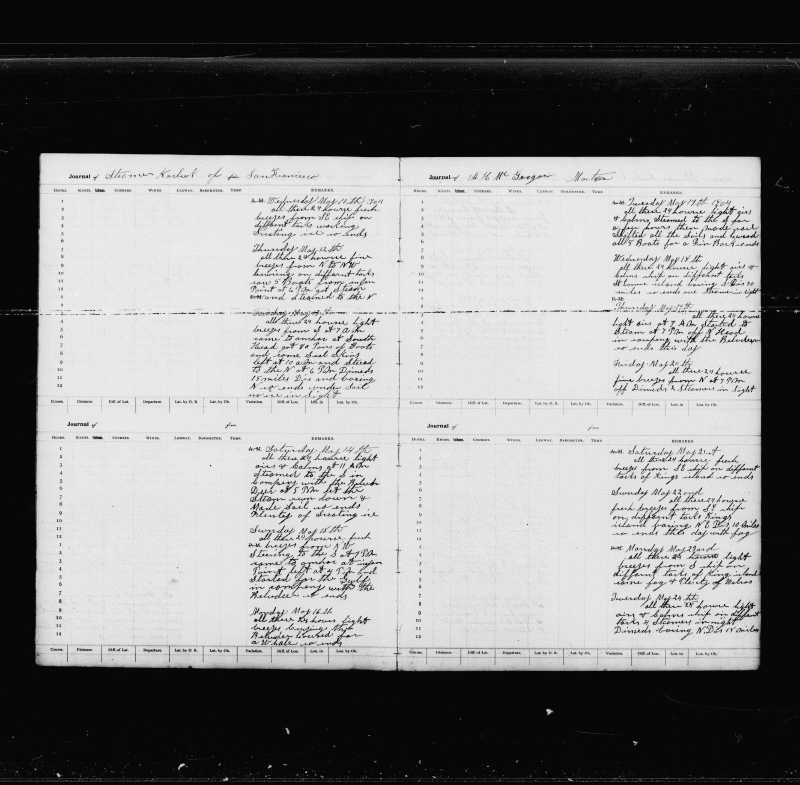 Journal of Steamer Karluk of San Francisco
HOURS. KNOTS. Fathoms. COURSES. WINDS. LEEWAY. BAROMETER. TEMP. REMARKS.
1
2
3
4
5
6
7
8
9
10
11
12
1
2
3
4
5
6
7
8
9
10
11
12
A.M. Wednesday May 11th 1904
all these 24 hourse fresh
breezes from SE ship on
different tacks working
so ends
Thursday May 12th
all these 24 hourse fine
breezes from N to NW
on different tacks
saw 5 Boats from
Point at 6 P.M. got Steam
P.M. and steamed to the N
May
all these 24 hourse light
breezes from S at 7 A.M
came to anchor at South
Head got 80 Pairs of Boots
and some Seal Skins
left at 10 a.m and
to the N at 6 P.M Dimeds
15 miles Dis and baring
N so ends under Sail
no ice in sight
Course. Distance. Diff. of Lat. Departure. Lat. by D. R. Lat. by Ob. Variation. Diff. of Lon. Lon. in Lon. by Ob.
Journal of from
HOURS. KNOTS. Fathoms. COURSES. WINDS. LEEWAY. BAROMETER. TEMP. REMARKS.
1
2
3
4
5
6
7
8
9
10
11
12
1
2
3
4
5
6
7
8
9
10
11
12
A.M. Saturday May 14th
all these 24 hourse light
airs & Calms at 11 A.M
Steamed to the S in
Company with the
at 5 P.M let the
Steam run down &
Made Sail so ends
Plenty of ice
Sunday May 15th
all these 24 hourse fresh
P.M. breezes from N W
Steering to the S at 7 P.M
came to anchor at
Point left at 9 P.M and
Started for the
in company with the
Belveder so ends
Monday May 16th
all these 24 hours light
breezes
Belveder for
a Whale so ends
Course. Distance. Diff. of Lat. Departure. Lat. by D. R. Lat. by Ob. Variation. Diff. of Lon. Lon. in Lon. by Ob.
Journal of
HOURS. KNOTS. Fathoms. COURSES. WINDS. LEEWAY. BAROMETER. TEMP. REMARKS.
1
2
3
4
5
6
7
8
9
10
11
12
1
2
3
4
5
6
7
8
9
10
11
12
A.M. Tuesday May 17th 1904
all these 24 hourse light airs
& Calms, Steamed to the for
a few hours then made sail
Shifted all the Sails and
all 5 Boats for a so ends
Wednesday May 18th
all these 24 hourse light airs &
calms ship on different tacks
island baring S Dis 30
miles so ends one Steamer in sight
P.M.
Thursday May 19th
all these 24 hourse
light airs at 7 A.M Started to
Steam at 7 P.M off N Head
in company with the Belveder
so ends this day
Friday May 20th
all these 24 hourse
fine breezes from N at 7 P.M
off Dimeds 2 Steamers in sight
Course. Distance. Diff. of Lat. Departure. Lat. by D. R. Lat. by Ob. Variation. Diff. of Lon. Lon. in Lon. by Ob.
Journal of from
HOURS. KNOTS. Fathoms. COURSES. WINDS. LEEWAY. BAROMETER. TEMP. REMARKS.
1
2
3
4
5
6
7
8
9
10
11
12
1
2
3
4
5
6
7
8
9
10
11
12
A.M. Saturday May 21st
all these 24 hourse fresh
breezes from SE ship on different
tacks of Kings island so ends
Sunday May 22nd
all these 24 hourse
fresh breezes from SE ship
on different tacks Kings
island baring N E Dis 10 miles
so ends this day with fog
P.M. Monday May 23rd
all these 24 hourse light
breezes from S ship on
different tacks of King island
some fog & Plenty of
Tuesday May 24th
all these 24 hourse light
airs & Calms ship on different
tacks 4 Steamers in sight
Dimeds baring N. Dis 15 miles
Course. Distance. Diff. of Lat. Departure. Lat. by D. R. Lat. by Ob. Variation. Diff. of Lon. Lon. in Lon. by Ob.